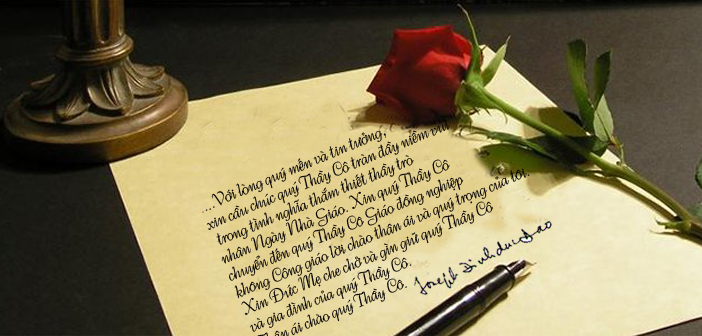 ...Với lòng quý mến và tin tưởng,
xin cầu chúc quý Thầy Cô tràn đầy niềm vui
trong tình nghĩa thắm thiết thầy trò
nhân Ngày Nhà Giáo. Xin quý Thầy Cô
chuyển đến quý Thầy Cô Giáo đồng nghiệp
không Công giáo lời chào thân ái và quý trọng của tôi.
Xin Đức Mẹ che chở và gìn giữ quý Thầy Cô
và gia đình của quý Thầy Cô.
Thân ái chào quý Thầy Cô.
Joseph Đinh đức Đạo